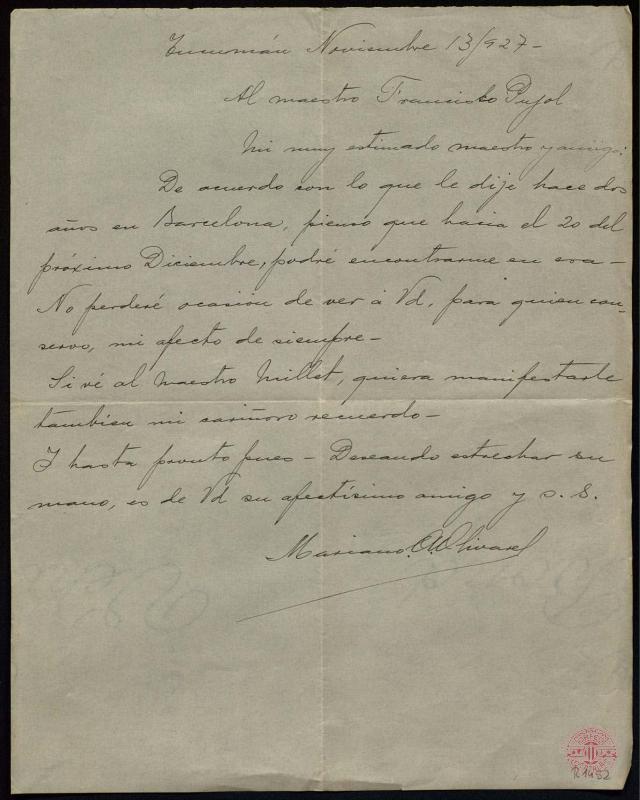 Tucumán Noviembre 13/927-
Al maestro Francisco Pujol
Mi muy estimado maestro y amigo:
De acuerdo con lo que le dije hace dos
años en Barcelona, pienso que hacia el 20 del
próximo Diciembre, podré encontrarme en esa-
No perderé ocasión de ver á Vd, para quien con-
servo, mi afecto de siempre-
Si vé al Maestro Millet, quiera manifestarle
tambien mi cariñoso recuerdo-
I hasta pronto pues- Deseando estrechar su
mano, es de Vd su afectísimo amigo y s. S.
Mariano A. Olivares
R1452